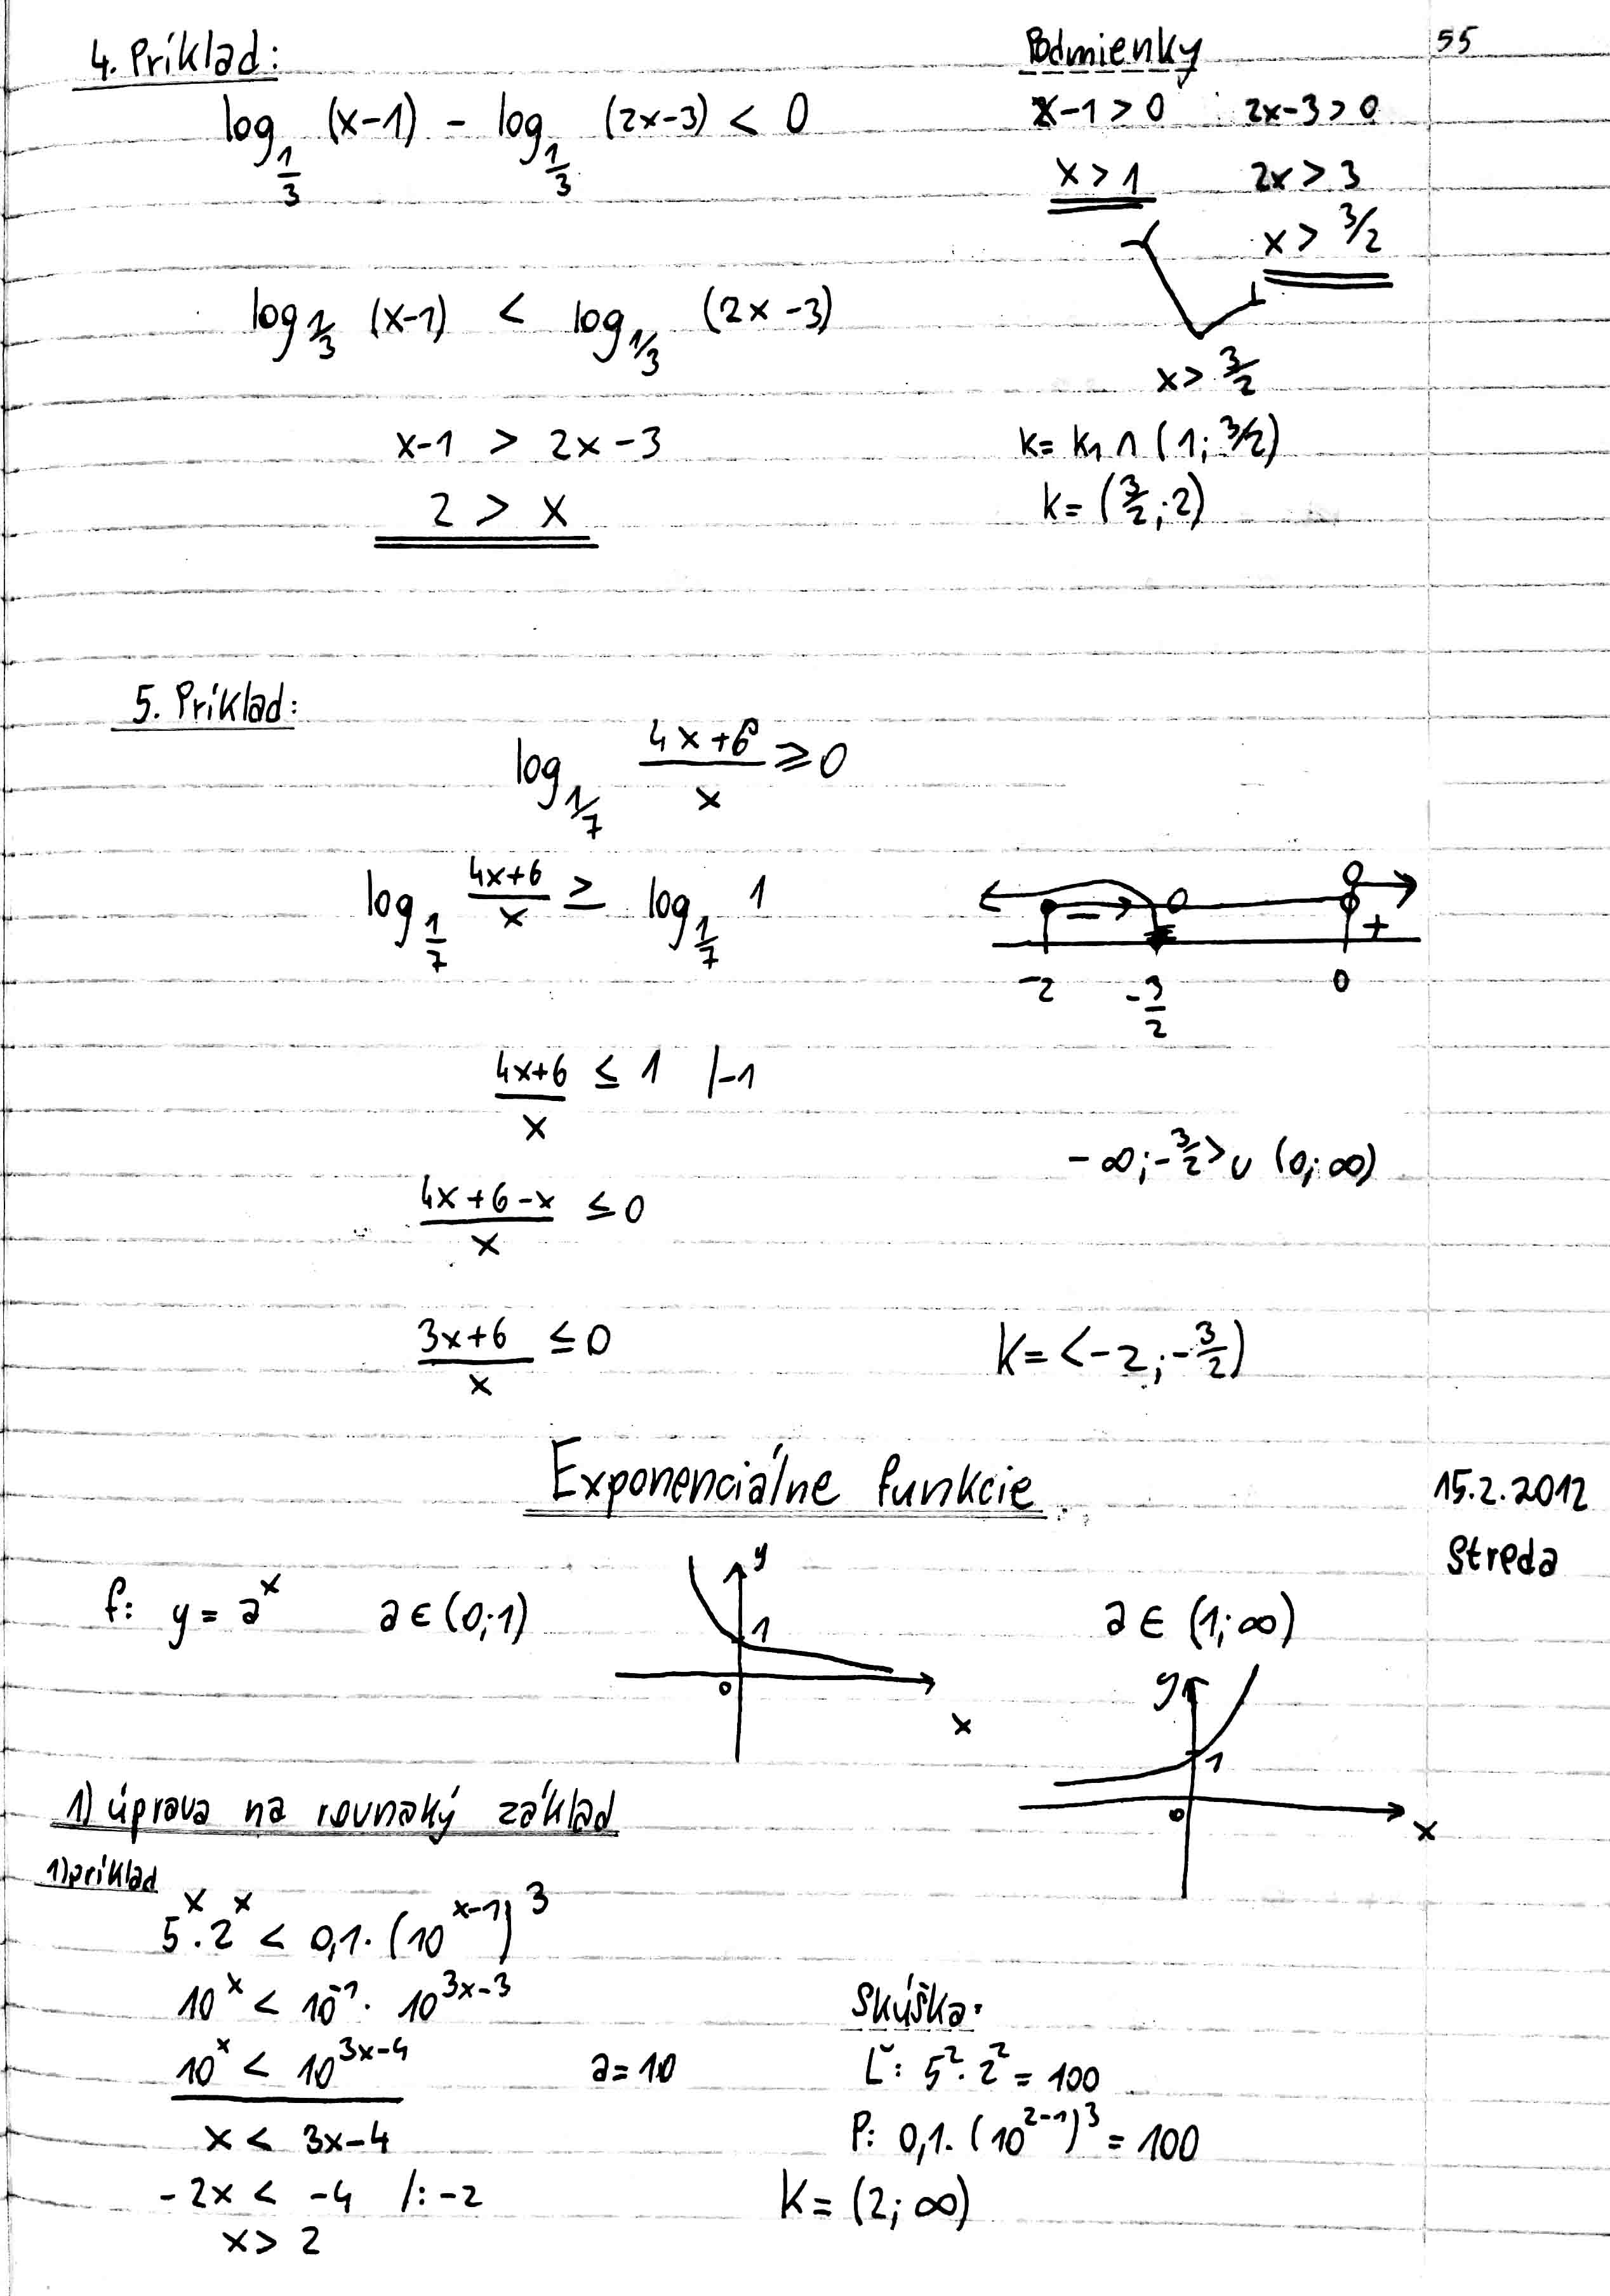 55
4. Príklad:
log_{1/3} (x-1) - log_{1/3} (2x-3) < 0
log_{1/3} (x-1) < log_{1/3} (2x-3)
x-1 > 2x-3
2 > x
Podmienky
x-1>0 2x-3>0
x>1 2x>3
x> 3/2
x> 3/2
k= k₁ ∩ (1; 3/2)
k= (3/2; 2)
5. Príklad:
log_{1/7} (4x+6)/x ⩾ 0
log_{1/7} (4x+6)/x ≥ log_{1/7} 1
(4x+6)/x ≤ 1 /-1
(4x+6-x)/x ≤ 0
(3x+6)/x ≤ 0
- +
-2 -3/2 0
-∞; -3/2> ∪ (0; ∞)
K= <-2; -3/2)
Exponenciálne funkcie
15.2.2012
Streda
f: y = a^x a ∈ (0;1)
y
1
0
x
a ∈ (1; ∞)
y
1
0
x
1) úprava na rovnaký základ
1) príklad
5^x . 2^x < 0,1. (10^{x-1})^3
10^x < 10^{-1} . 10^{3x-3}
10^x < 10^{3x-4} a=10
x < 3x-4
-2x < -4 /: -2
x > 2
Skúška:
Ľ: 5^2 . 2^2 = 100
P: 0,1. (10^{2-1})^3 = 100
K = (2; ∞)